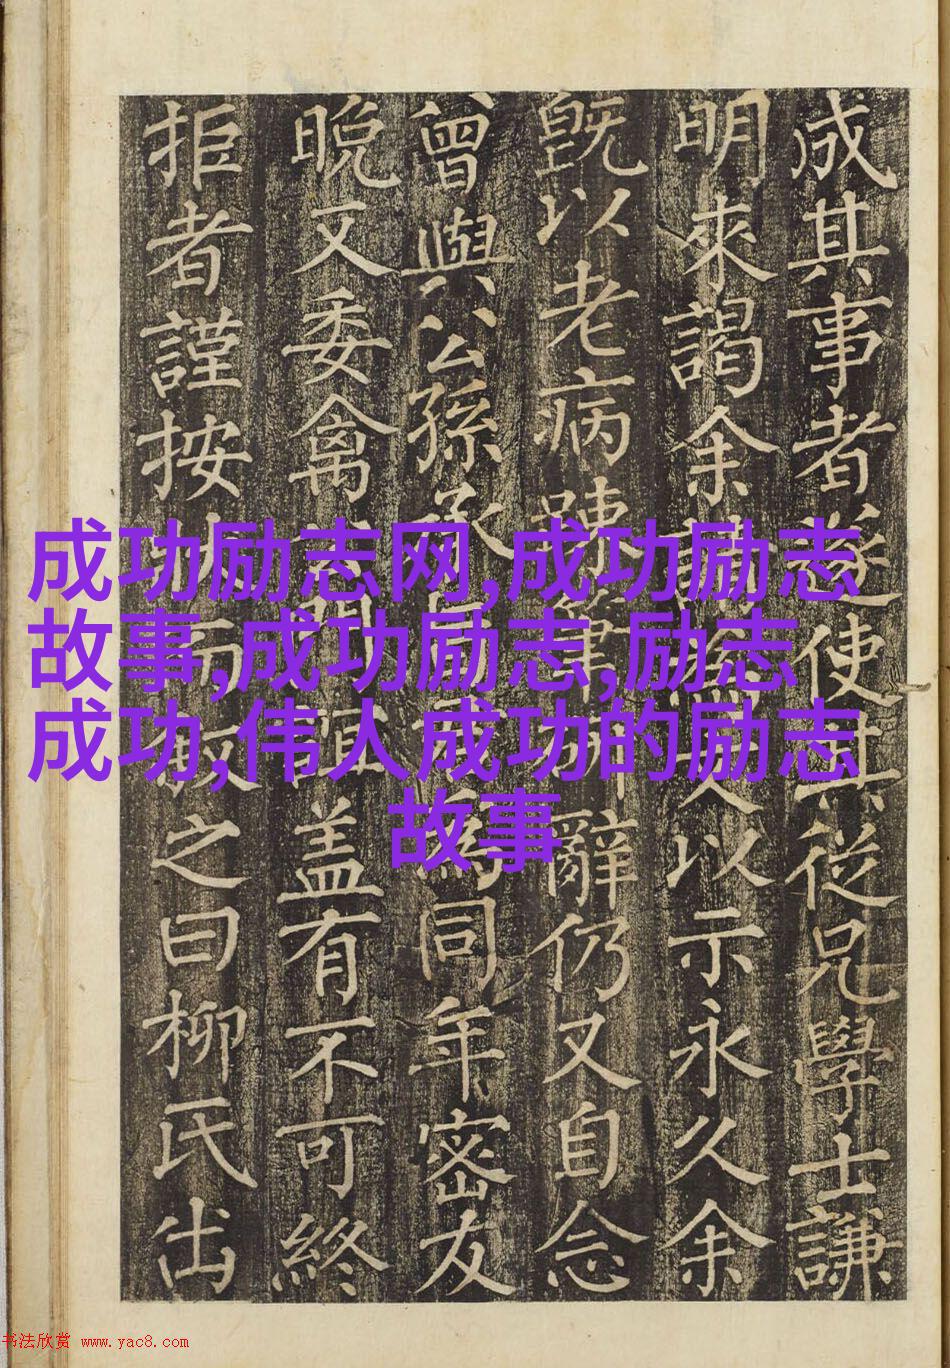 成其事者遂使其從兄學士謙
明來謁余文以示永久余
既以老病踈筆辭仍又自念
曾與公孫為同年密友
晚又委禽盖有不可終
拒者謹按之曰柳氏出
成功励志网,成功励志
故事,成功励志,励志
成功,伟人成功的励志
故事
书法欣赏 www.yac8.com